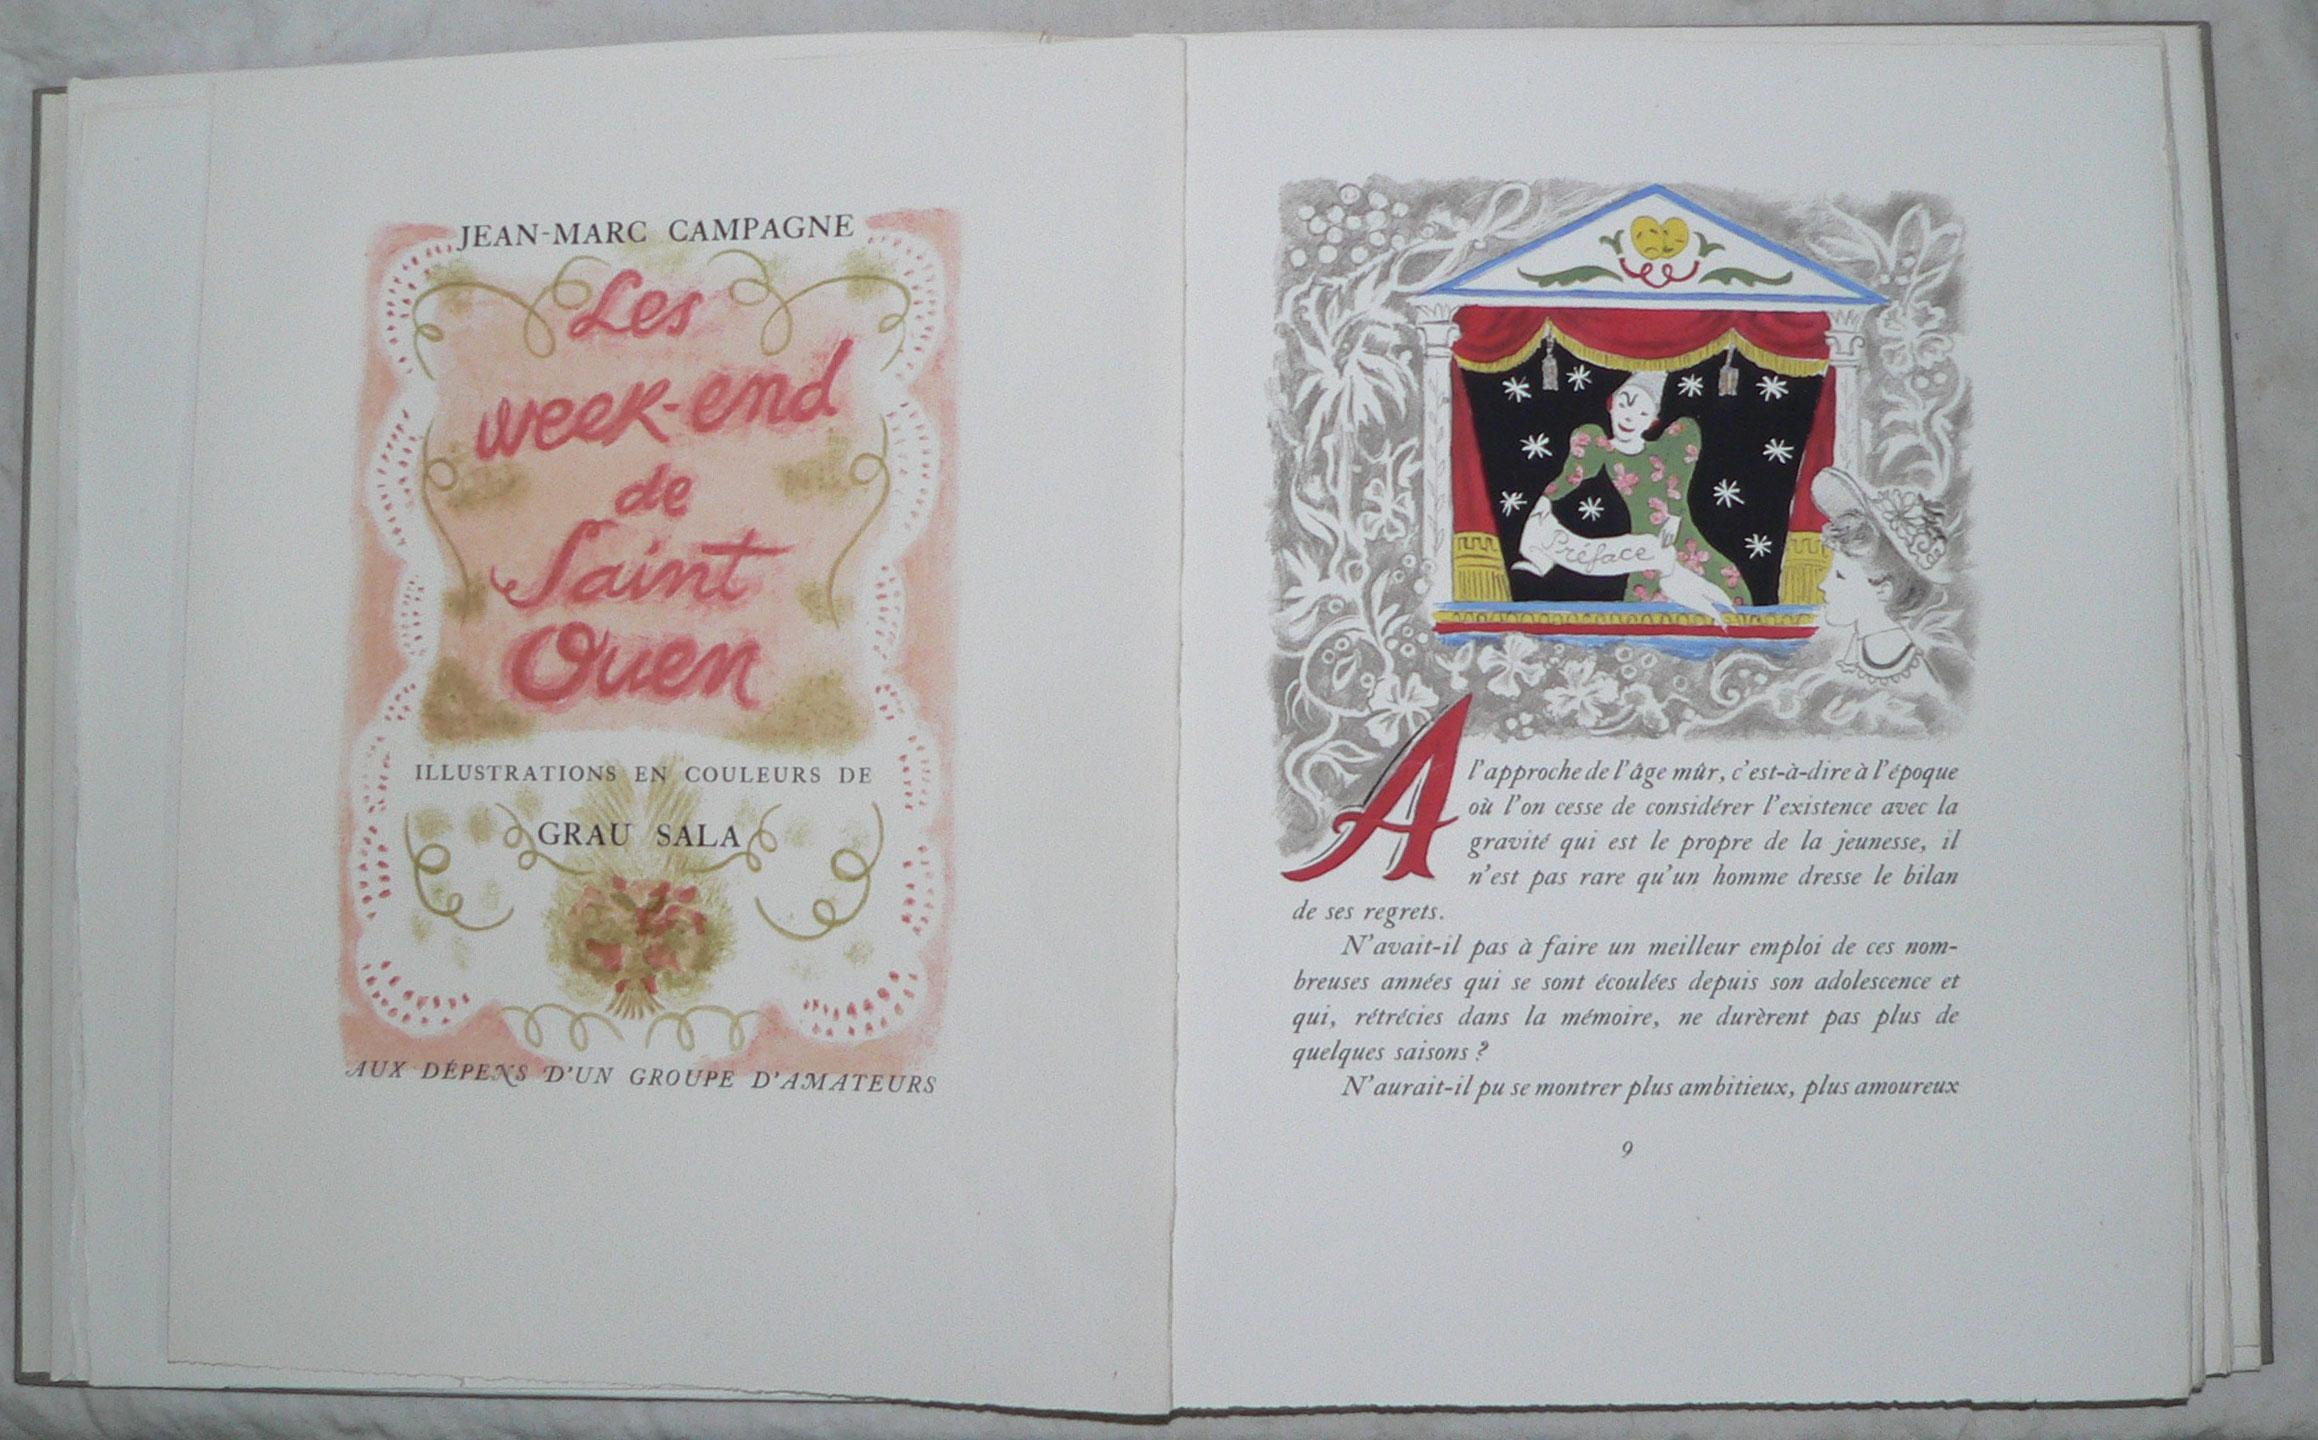 JEAN-MARC CAMPAGNE
Les
week-end
de
Saint
Ouen
ILLUSTRATIONS EN COULEURS DE
GRAU SALA
AUX DÉPENS D'UN GROUPE D'AMATEURS
Préface
A l'approche de l'âge mûr, c'est-à-dire à l'époque
où l'on cesse de considérer l'existence avec la
gravité qui est le propre de la jeunesse, il
n'est pas rare qu'un homme dresse le bilan
de ses regrets.
N'avait-il pas à faire un meilleur emploi de ces nom-
breuses années qui se sont écoulées depuis son adolescence et
qui, rétrécies dans la mémoire, ne durèrent pas plus de
quelques saisons ?
N'aurait-il pu se montrer plus ambitieux, plus amoureux
9